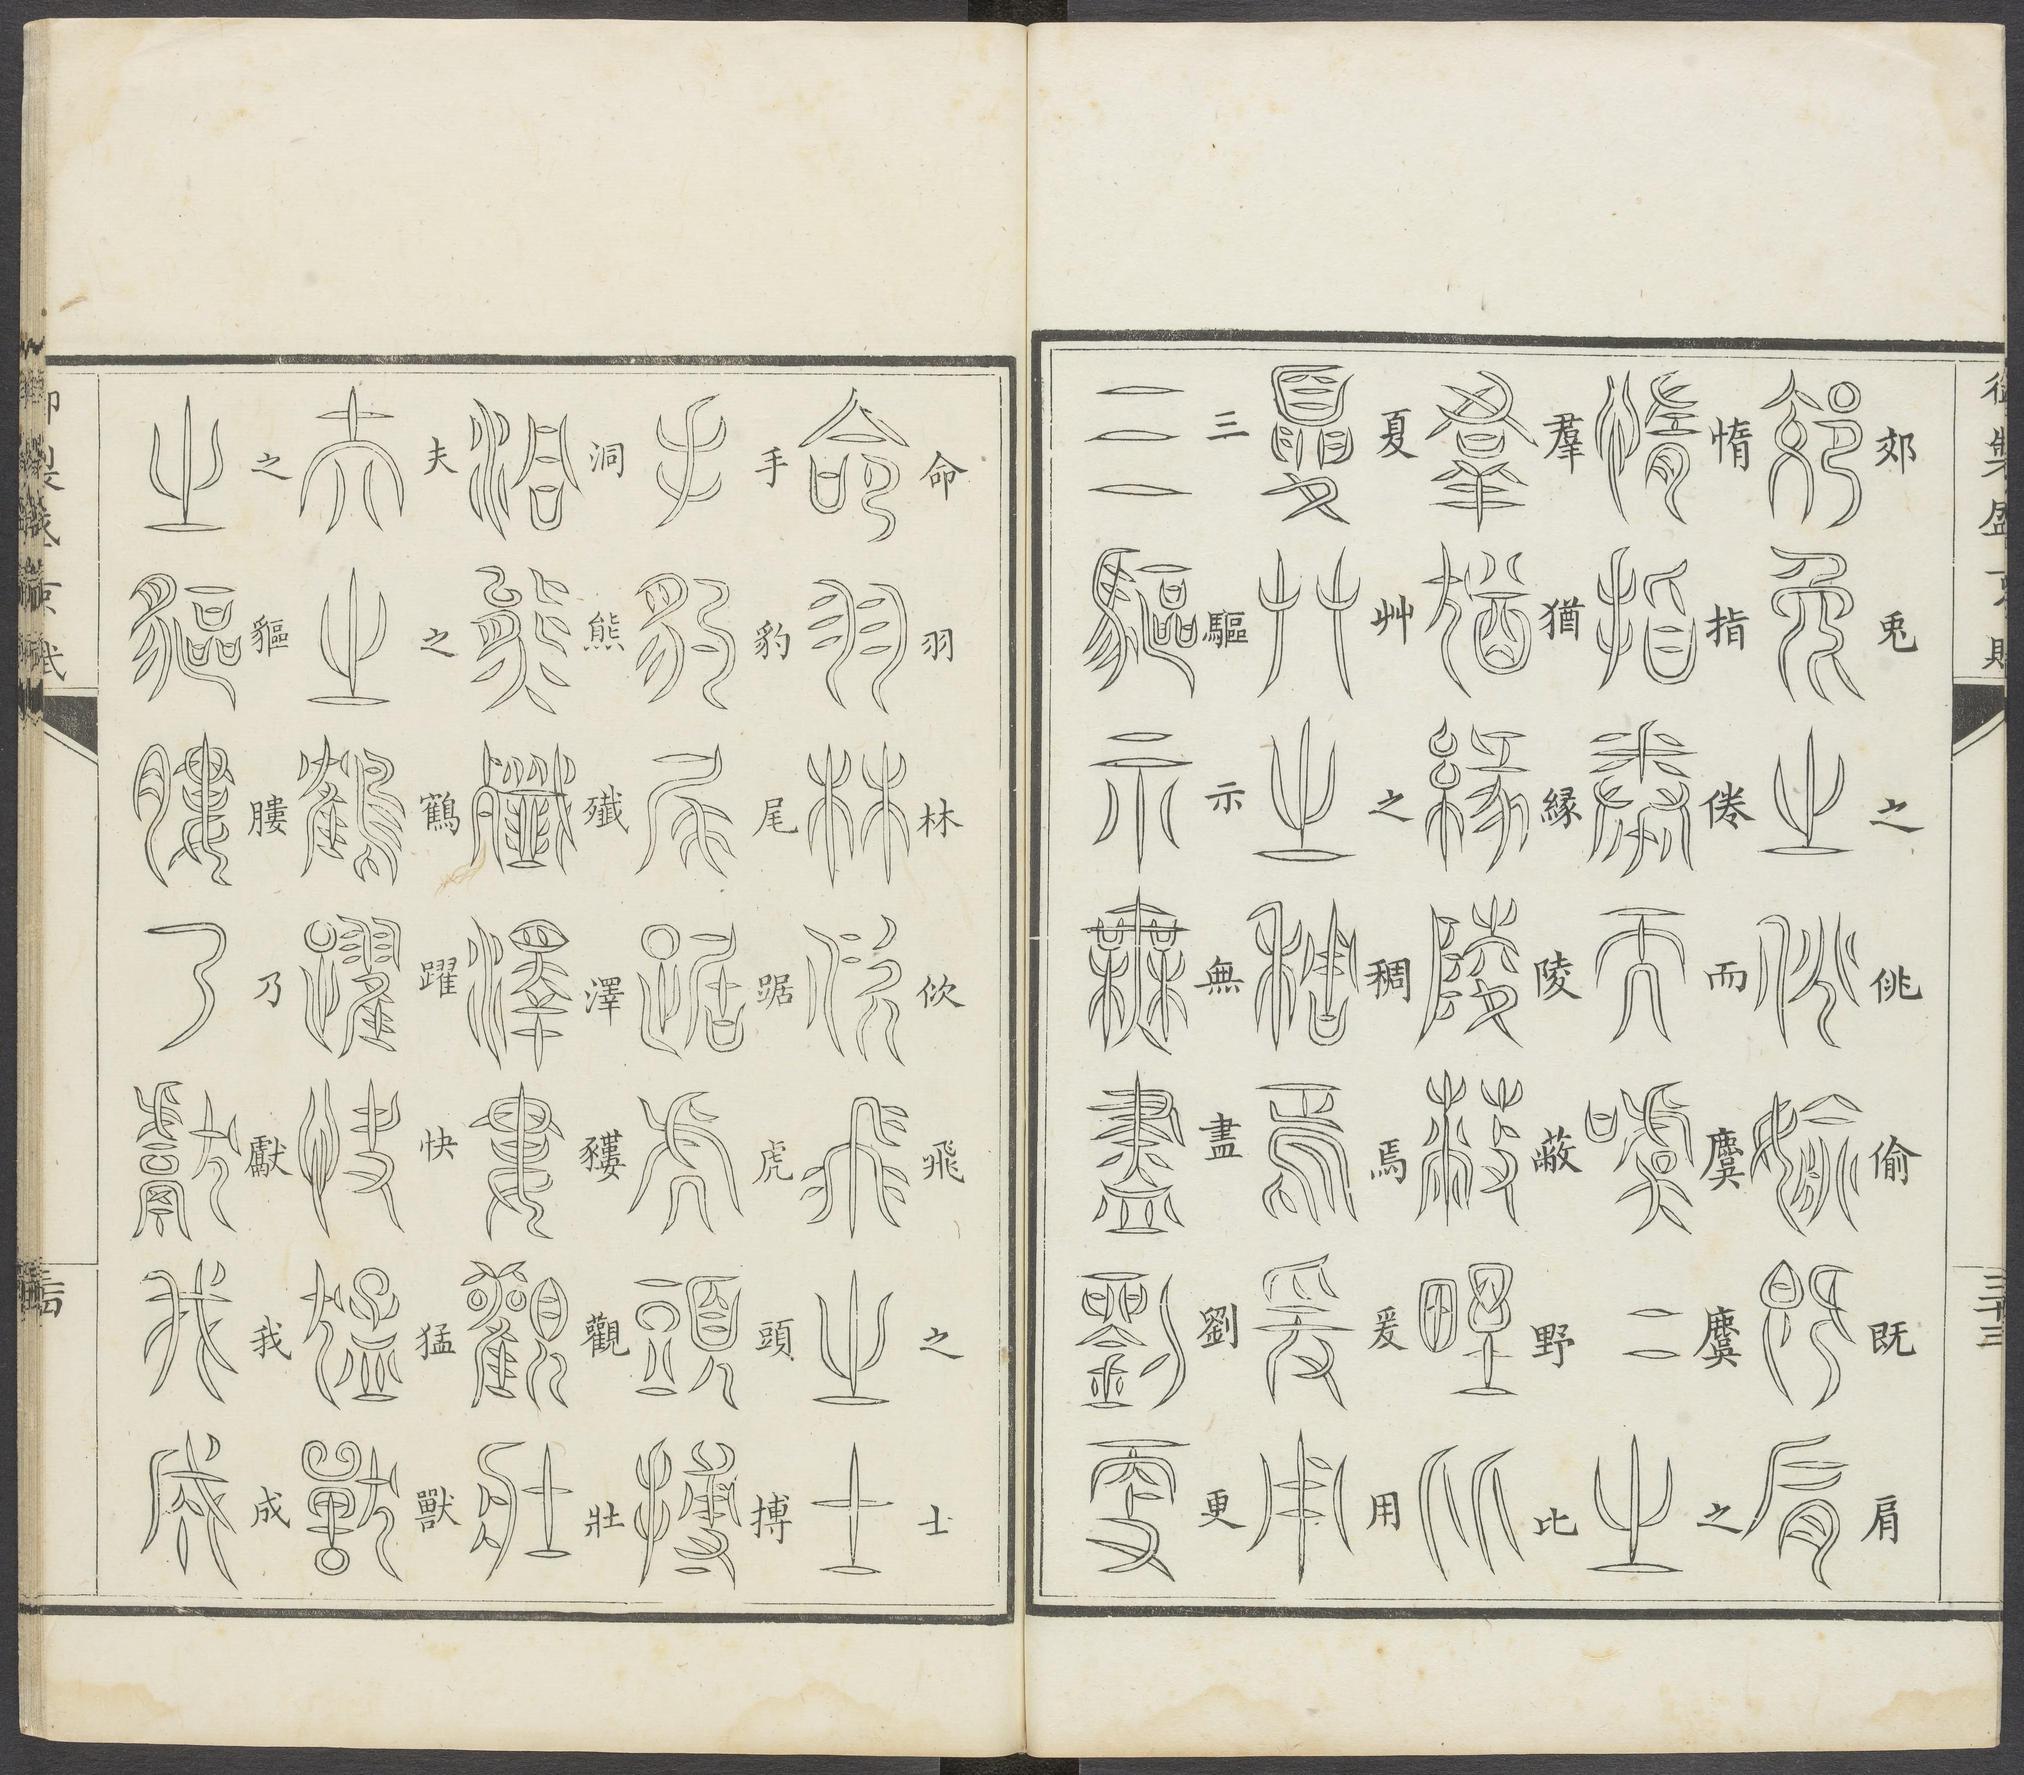 郊兎之佻偷既肩
惰指倦而麌麌之
羣猶緣陵蔽野比
夏艸之稠焉爰用
三驅示無盡劉更
三十三
命羽林佽飛之士
手豹尾踞虎頭搏
洞熊殱澤貗觀壯
夫之鶴躍快猛獸
之貙膢乃獻我成